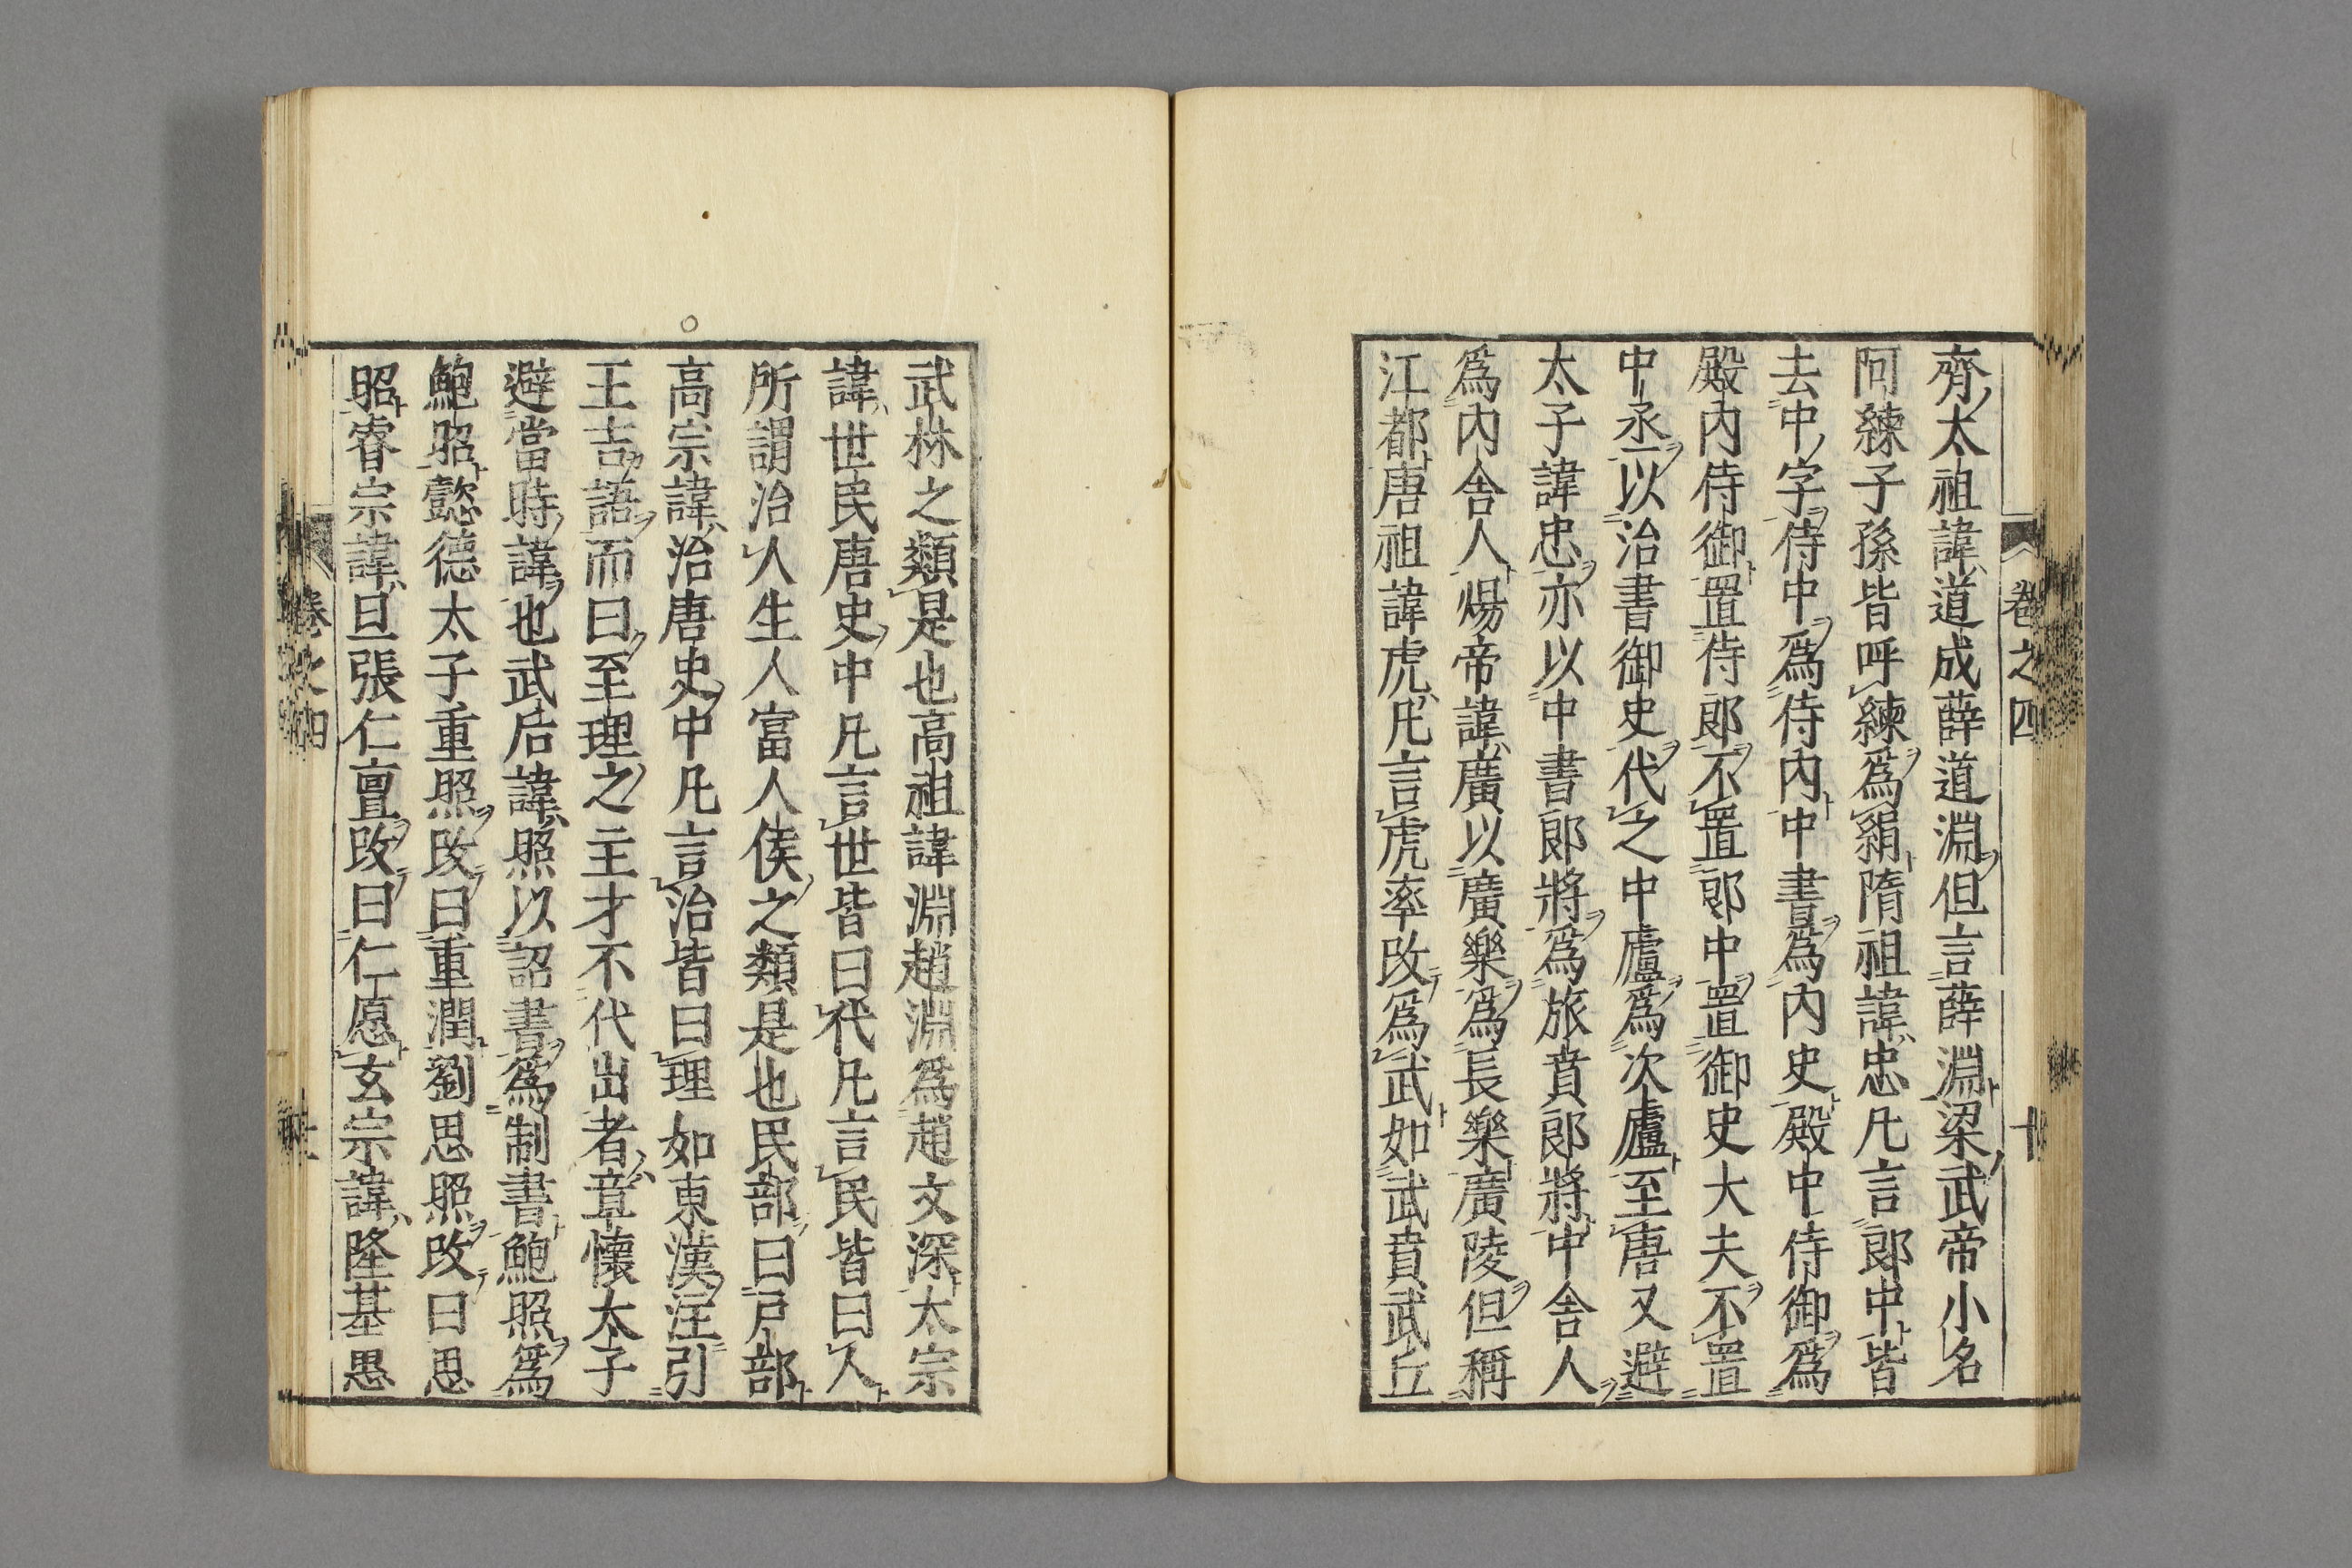 齊太祖諱道成薛道淵但言薛淵梁武帝小名
阿練子孫皆呼練爲絹隋祖諱忠凡言郎中皆
去中字侍中爲侍內中書爲內史殿中侍御爲
殿內侍御置侍郎不置郎中置御史大夫不置
中丞以治書御史代之中廬爲次廬至唐又避
太子諱忠亦以中書郎將爲旅賁郎將中舍人
爲內舍人煬帝諱廣以廣樂爲長樂廣陵但稱
江都唐祖諱虎凡言虎率改爲武如武賁武丘
卷之四
十
武林之類是也高祖諱淵趙淵爲趙文深太宗
諱世民唐史中凡言世皆曰代凡言民皆曰人
所謂治人生人富人侯之類是也民部曰戸部
高宗諱治唐史中凡言治皆曰理如東漢注引
王吉語而曰至理之主才不代出者章懷太子
避當時諱也武后諱照以詔書爲制書鮑照爲
鮑昭懿德太子重照改曰重潤劉思照改曰思
昭睿宗諱旦張仁亶改曰仁愿玄宗諱隆基惠
卷之四